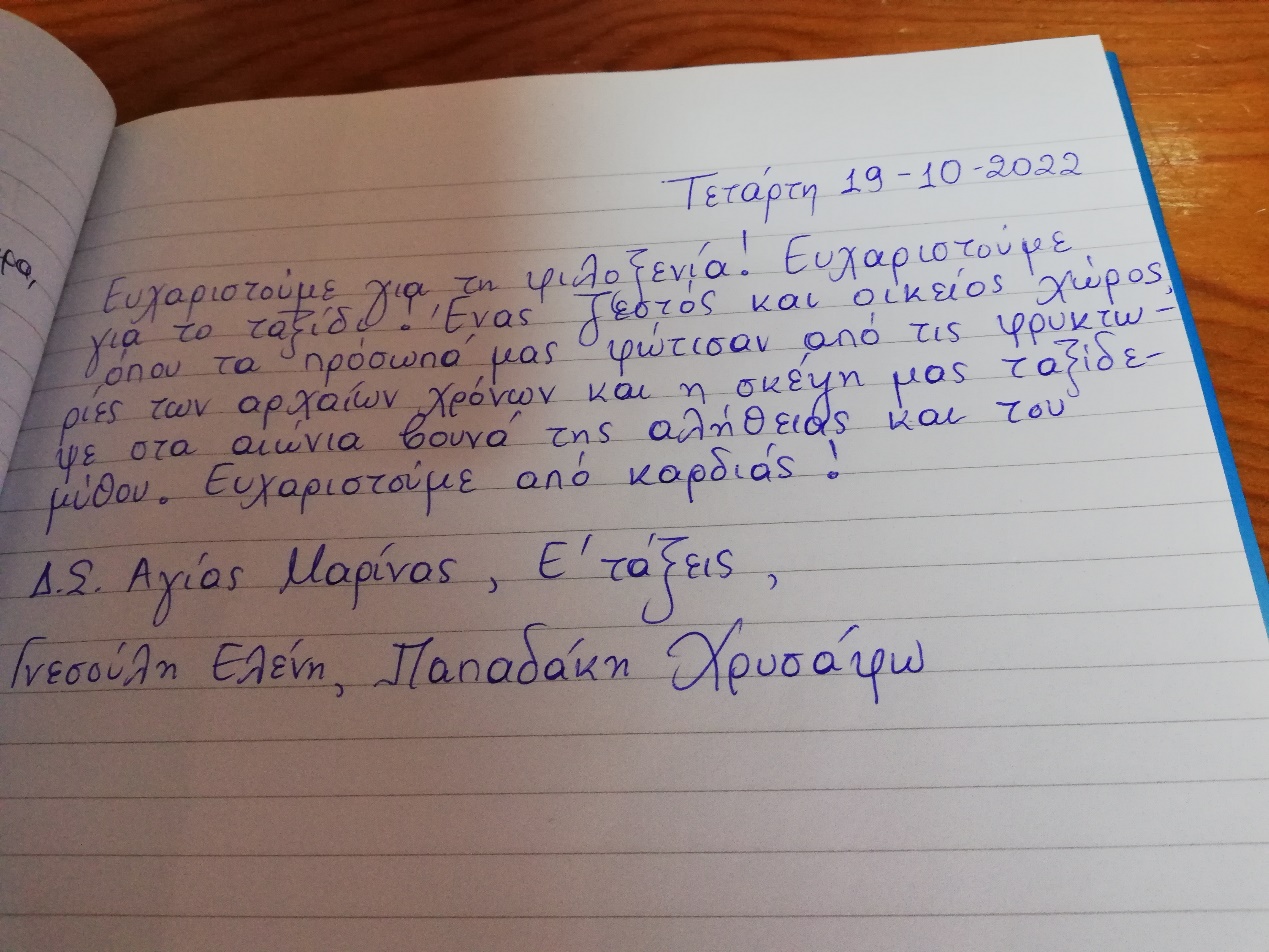 Τετάρτη 19-10-2022
ρα,
Ευχαριστούμε για τη φιλοξενία! Ευχαριστούμε
για το ταξίδι! Ένας ζεστός και οικείος χώρος,
όπου τα πρόσωπά μας φώτισαν από τις φρυκτω-
ρίες των αρχαίων χρόνων και η σκέψη μας ταξίδε-
ψε στα αιώνια βουνά της αλήθειας και του
μύθου. Ευχαριστούμε από καρδιάς!
Δ.Σ. Αγίας Μαρίνας, Ε' τάξεις,
Γνεσούλη Ελένη, Παπαδάκη Χρυσάφω